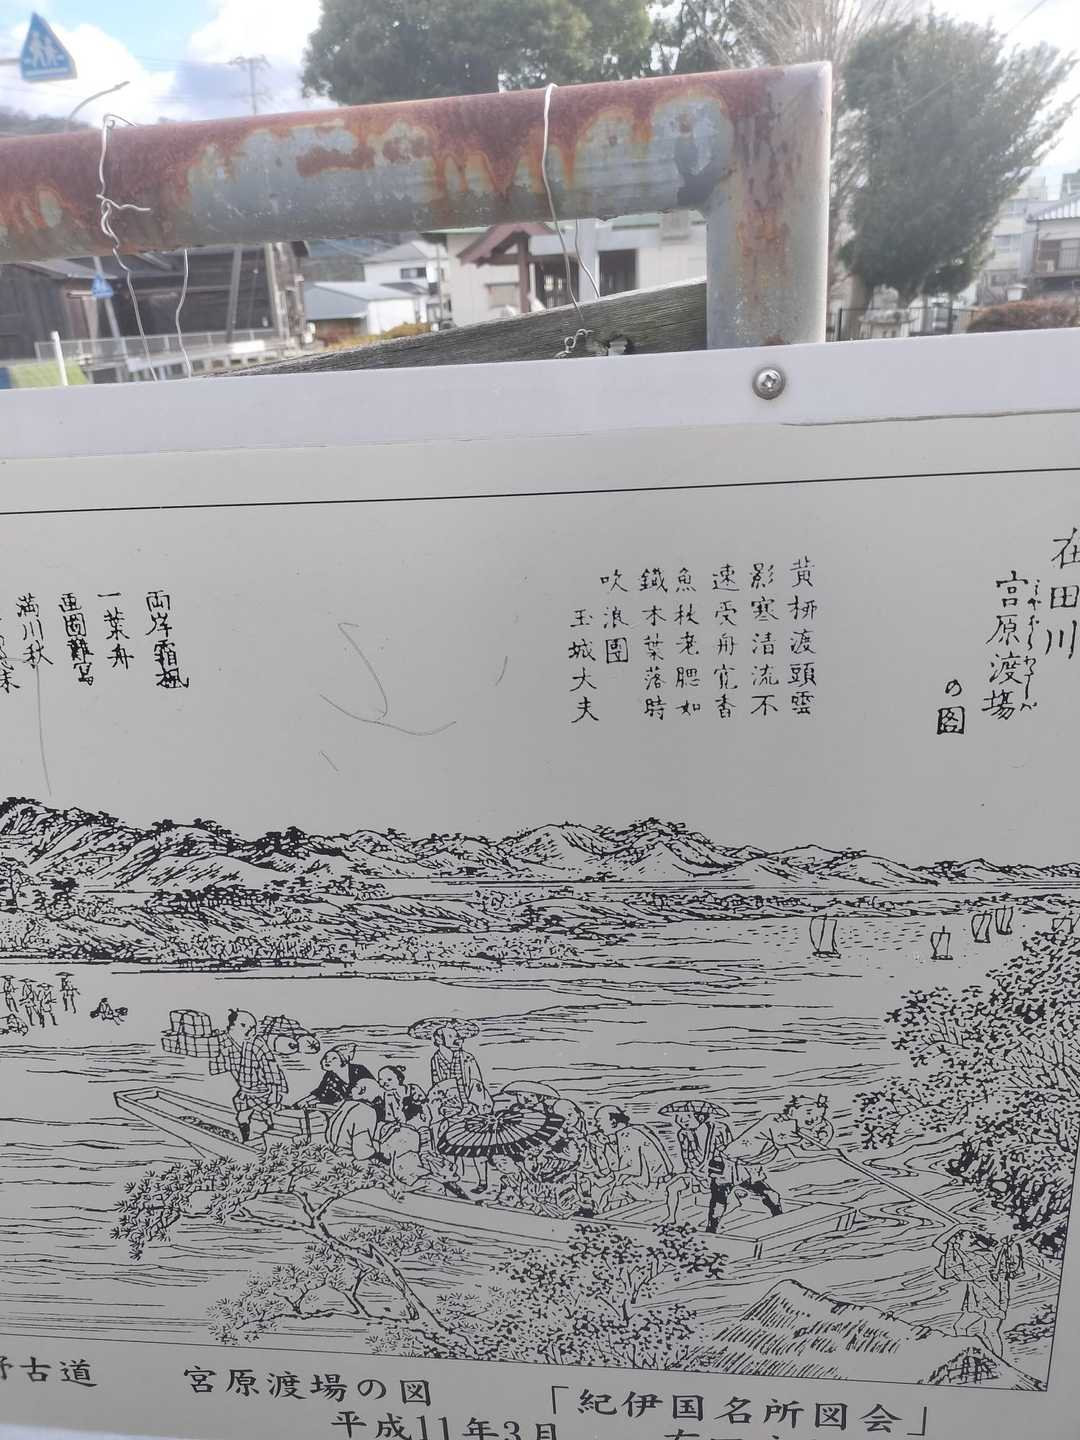 在田川
宮原渡場
みやはらわたしば
の図
黄栁渡頭雲
影寒清流不
速受舟寛香
魚秋老腮如
鐵木葉落時
吹浪團
玉城大夫
両岸霜楓
一葉舟
画圖難寫
満川秋
野古道
宮原渡場の図
「紀伊国名所図会」
平成11年3月